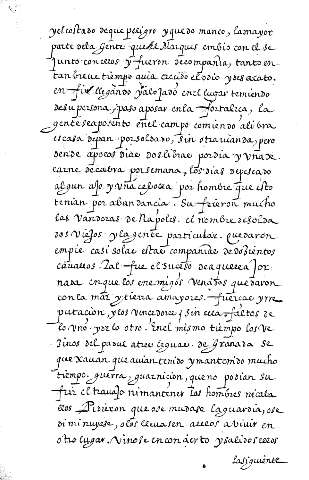 y el costado de que peligro y quedo manco, la mayor
parte de la gente que el Marques enbio con el se
junto con ellos y fueron de compañia, tanto en
tan breve tiempo avia crecido el odio y desacato.
en fin llegando y alojado en el lugar temiendo
de su persona, paso a posar en la fortaleza, la
gente se aposento en el campo comiendo a libra
escasa de pan por soldado, sin otra vianda, pero
dende a pocos dias dos libras por dia y una de
carne de cabra por semana, los dias de pescado
algun ajo y una cebolla por hombre que esto
tenian por abundancia. Sufrieron mucho
las vanderas de Napoles. el nombre de solda
dos viejos y la gente particular. Quedaron
en pie casi solas estas compañias de dozientos
cavallos. Tal fue el suceso de aquella jor
nada en que los enemigos vencidos quedaron
con la mar y tierra a mayores fuerças y re
putacion, y los vencedores sin ella faltos de
lo uno y por lo otro. En el mismo tiempo los ve
zinos del padul a tres leguas de Granada se
quexavan que avian tenido y mantenido mucho
tiempo guerra, guarnicion, que no podian su
frir el trabajo ni mantener los hombres ni cava
llos Pidieron que o se mudase la guardia, o se
diminuyese, o los llevasen a ellos a vivir en
otro lugar. Vinose en concierto y salidos ellos
la siguiente